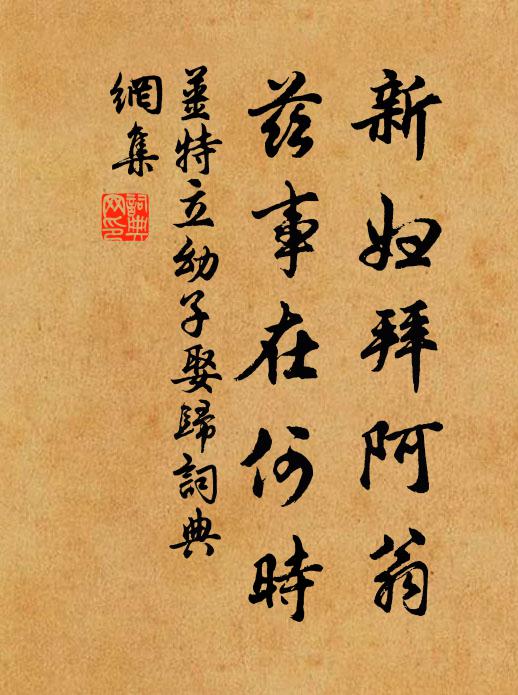 新妇拜阿翁
兹事在何時
薑特立幼子娶歸詞典
網集
詞典
网印